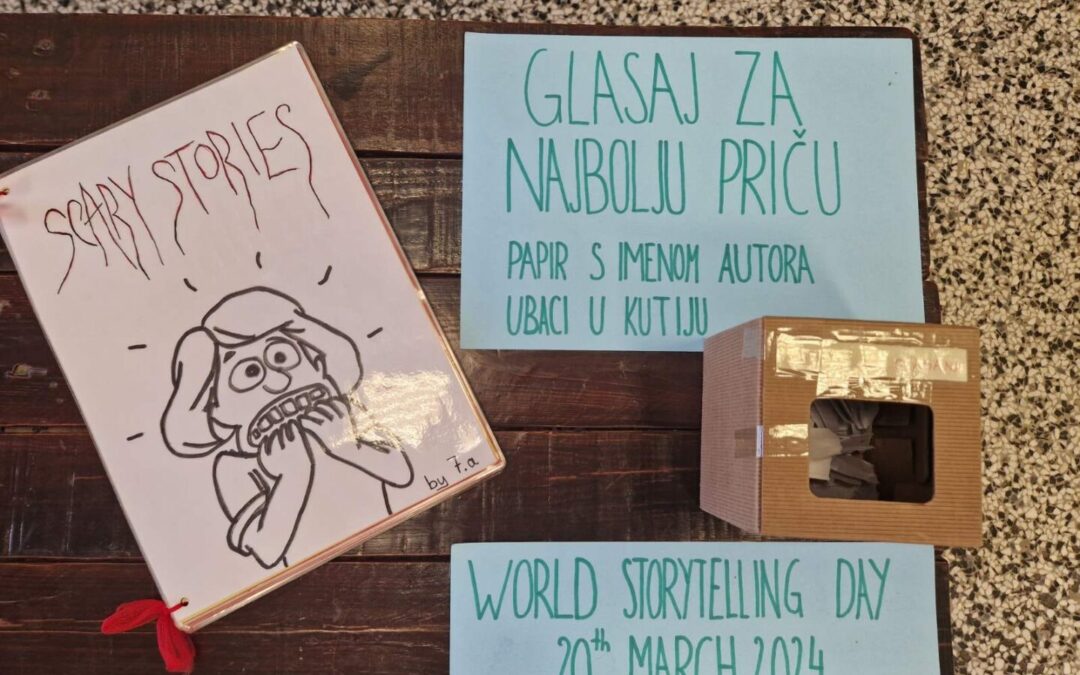 SCARY STORIES
by 7.a
GLASAJ ZA
NAJBOLJU PRIČU
PAPIR S IMENOM AUTORA
UBACI U KUTIJU
WORLD STORYTELLING DAY
20th MARCH 2024